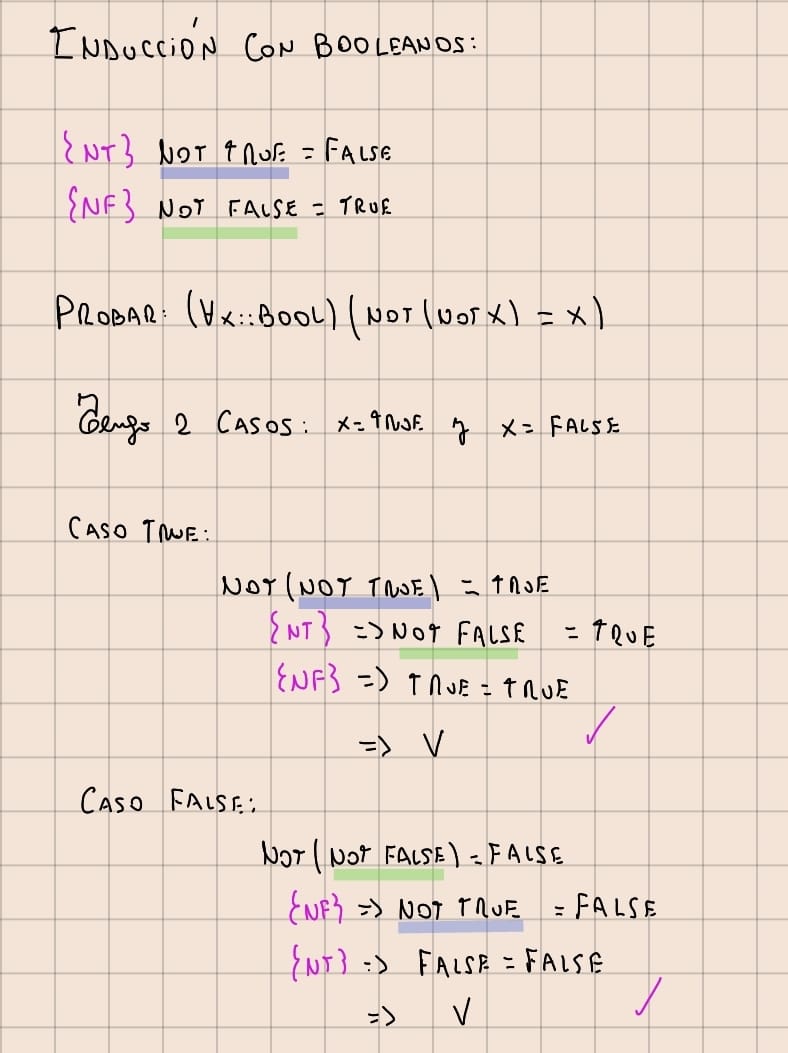 INDUCCIÓN CON BOOLEANOS:
{NT} NOT TRUE = FALSE
{NF} NOT FALSE = TRUE
PROBAR: (∀x::BOOL) (NOT (NOT X) = X)
Tengo 2 CASOS: X = TRUE y X = FALSE
CASO TRUE:
NOT (NOT TRUE) = TRUE
{NT} => NOT FALSE = TRUE
{NF} => TRUE = TRUE
=> V ✓
CASO FALSE:
NOT (NOT FALSE) = FALSE
{NF} => NOT TRUE = FALSE
{NT} => FALSE = FALSE
=> V ✓